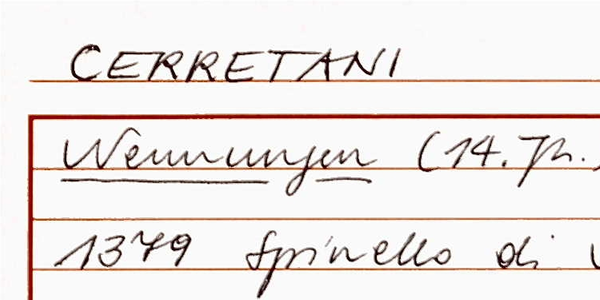 CERRETANI
Nennungen (14. Jh.)
1379 Spinello di